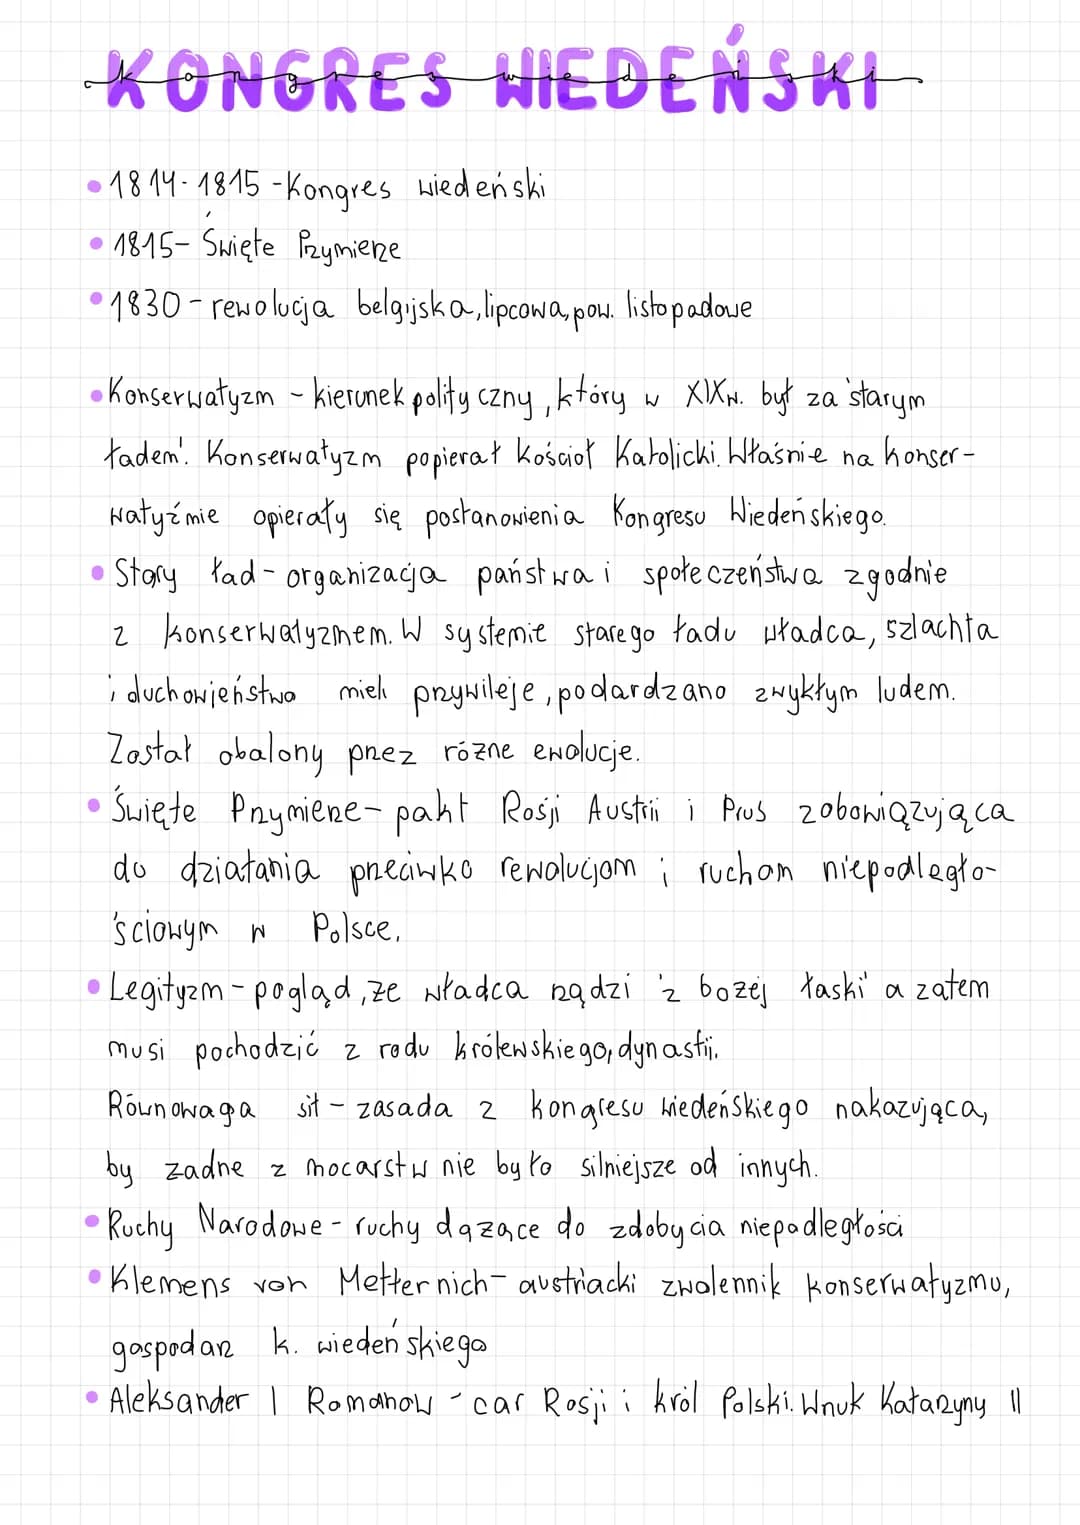 KONGRES WIEDEŃSKI
kongres wiedeński
• 1814-1815 - Kongres wiedeński
• 1815 - Święte Przymierze
• 1830 - rewolucja belgijska, lipcowa, pow. listopadowe
• Konserwatyzm - kierunek polityczny, który w XIXw. był za 'starym
ładem'. Konserwatyzm popierał kościoł Katolicki. Właśnie na konser-
watyźmie opierały się postanowienia Kongresu Wiedeńskiego.
• Stary ład - organizacja państwa i społeczeństwa zgodnie
z konserwatyzmem. W systemie starego ładu władca, szlachta
i duchowieństwo mieli przywileje, podardzano zwykłym ludem.
Został obalony przez różne ewolucje.
• Święte Przymierze - pakt Rosji Austrii i Prus zobowiązująca
do działania przeciwko rewolucjom i ruchom niepodległo-
ściowym w Polsce.
• Legityzm - pogląd, że władca rządzi 'z bożej łaski' a zatem
musi pochodzić z rodu królewskiego, dynastii.
Równowaga sił - zasada z kongresu wiedeńskiego nakazująca,
by żadne z mocarstw nie było silniejsze od innych.
• Ruchy Narodowe - ruchy dążące do zdobycia niepodległości
• Klemens von Metternich - austriacki zwolennik konserwatyzmu,
gospodarz k. wiedeńskiego
• Aleksander I Romanow - car Rosji i król Polski. Wnuk Katarzyny II